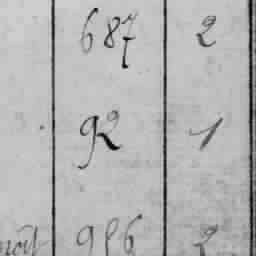 687 2
92 1
956 2